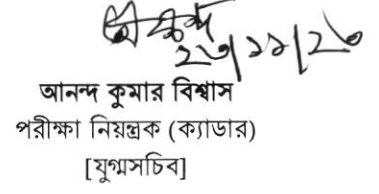 ২৩/১১/২৩
আনন্দ কুমার বিশ্বাস
পরীক্ষা নিয়ন্ত্রক (ক্যাডার)
[যুগ্মসচিব]